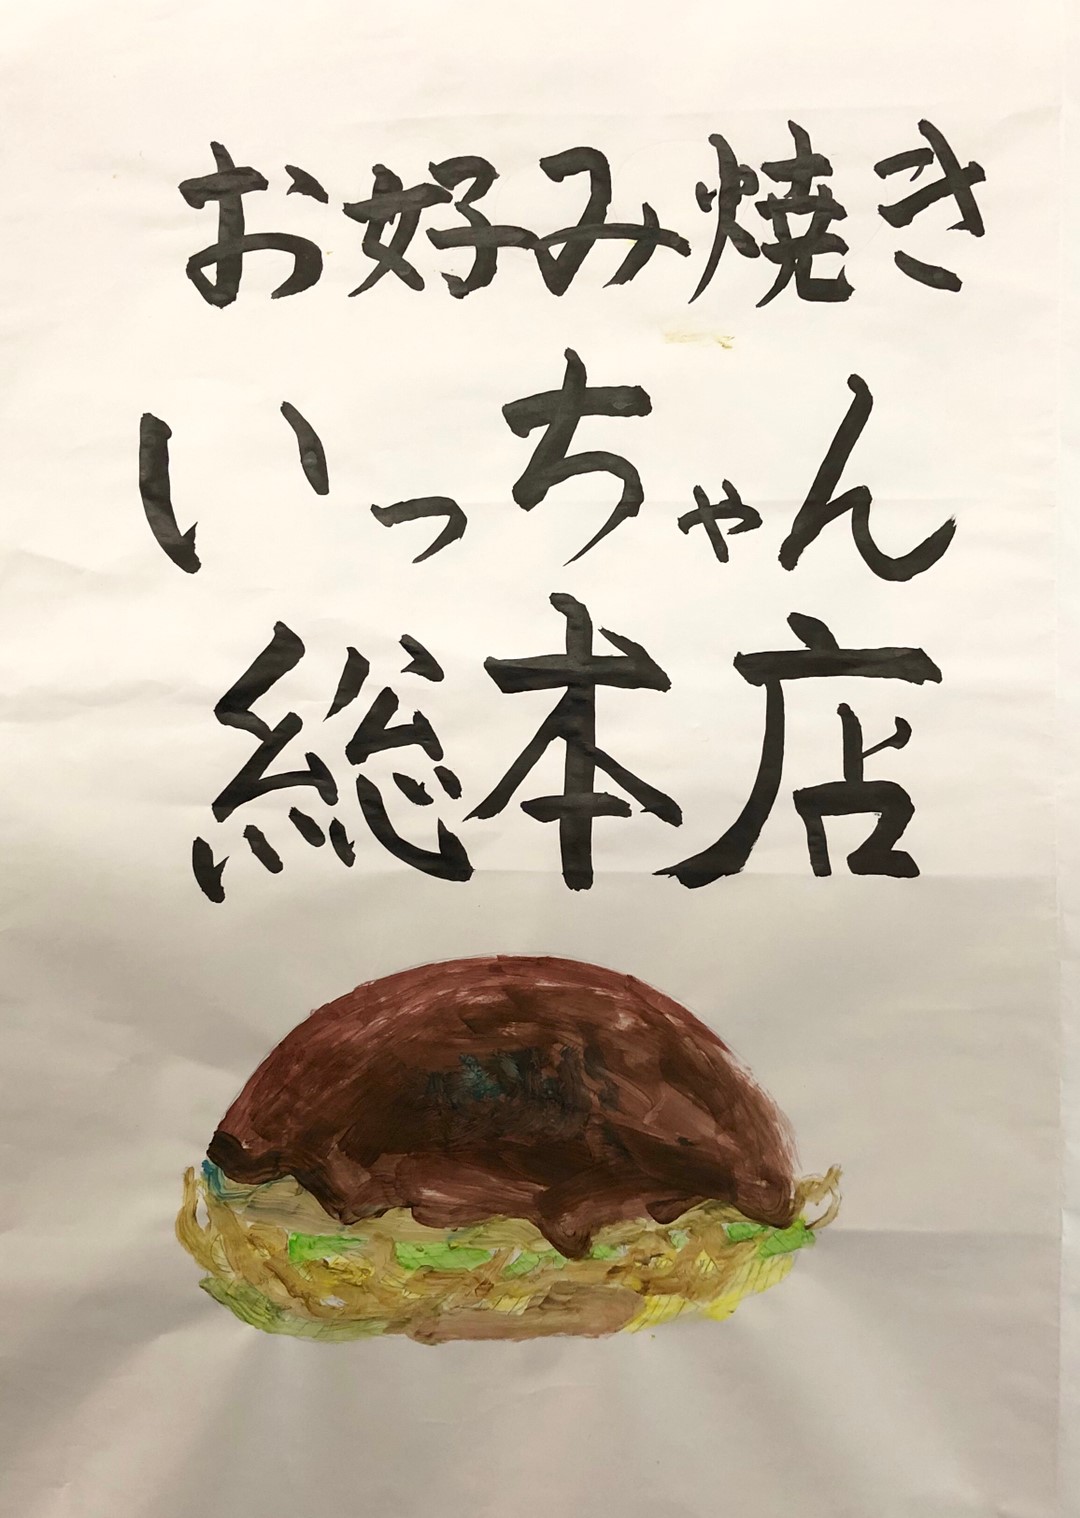 お好み焼き
いっちゃん
総本店